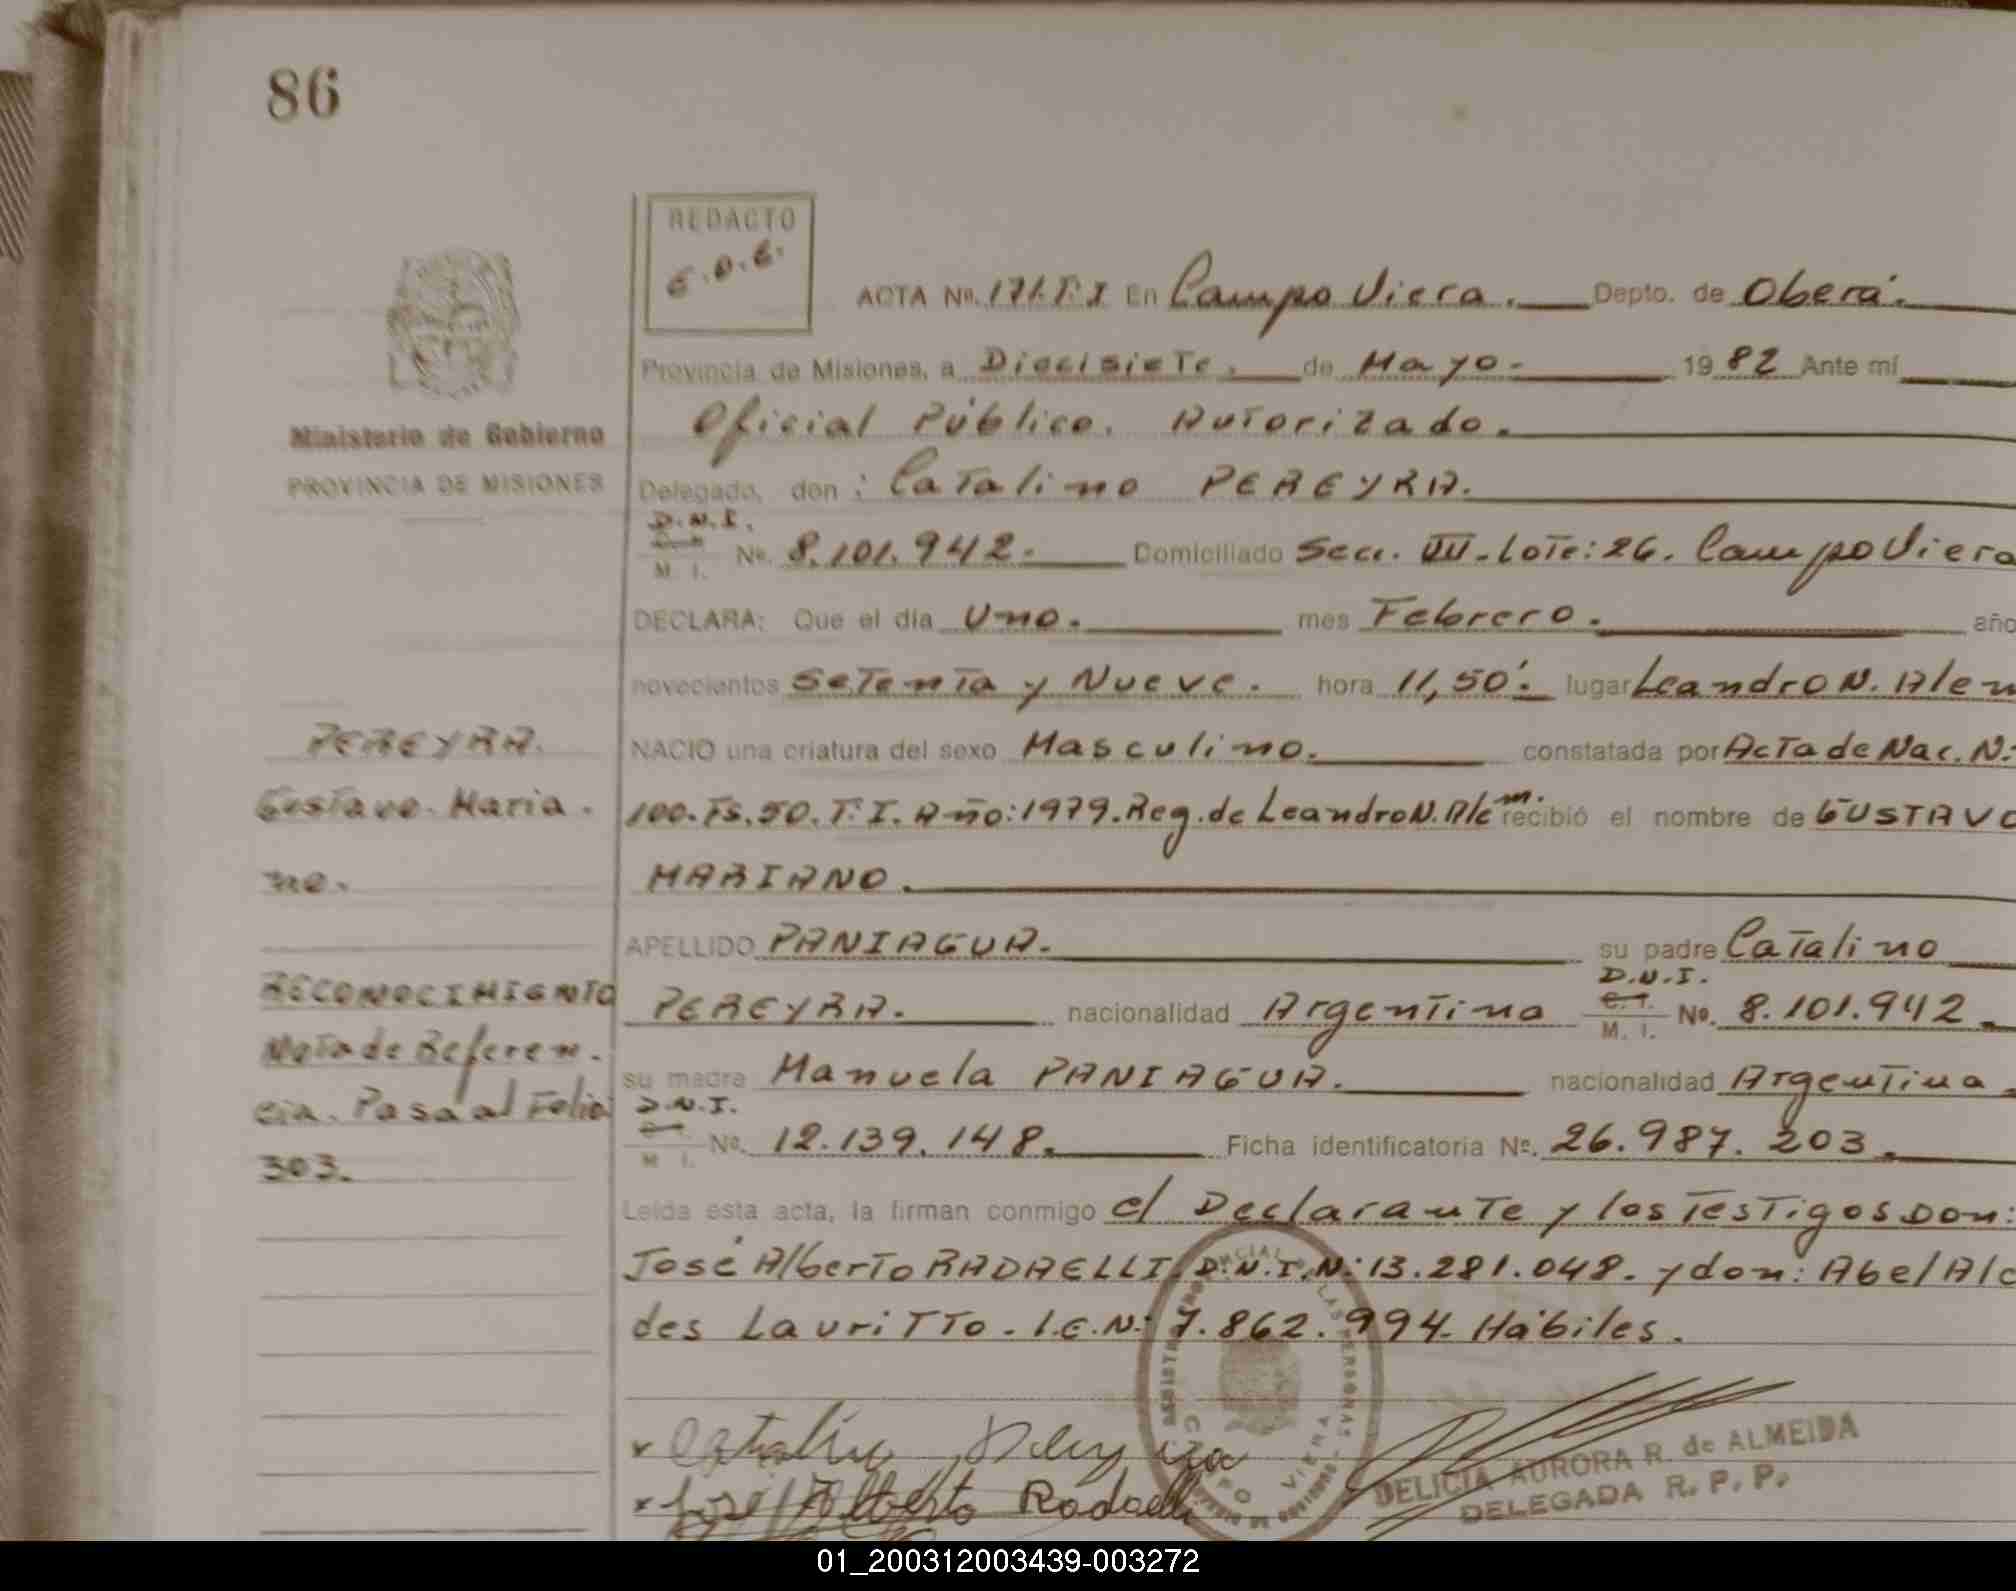 86
REDACTO
ACTA Nº. 171.T.I En Campo Viera. Depto. de Oberá.
Provincia de Misiones, a Diecisiete, de Mayo. 1982 Ante mí
Oficial Público. Autorizado.
Ministerio de Gobierno
PROVINCIA DE MISIONES
Delegado, don: Catalino PEREYRA.
D.N.I.
M. I. Nº. 8.101.942. Domiciliado Secc. VIII. Lote: 26. Campo Viera
DECLARA: Que el día Uno. mes Febrero. año
novecientos Setenta y Nueve. hora 11,50'. lugar Leandro N. Alem
PEREYRA.
NACIO una criatura del sexo Masculino. constatada por Acta de Nac. N:
Gustavo. Maria.
100. Fs. 50. T: I. Año: 1979. Reg. de Leandro N. Alem. recibió el nombre de GUSTAVO
no.
MARIANO.
APELLIDO PANIAGUA. su padre Catalino
RECONOCIMIENTO
PEREYRA. nacionalidad Argentina D.N.I. C. I. M. I. Nº. 8.101.942.
Nota de Referen.
su madre Manuela PANIAGUA. nacionalidad Argentina
cia. Pasa al Folio
D.N.I. C. I. M. I. Nº. 12.139.148. Ficha identificatoria Nº. 26.987.203.
303.
Leída esta acta, la firman conmigo el Declarante y los Testigos Don:
José Alberto RADAELLI D.N.I.N: 13.281.048. y don: Abel Alc
des Lauritto. L.E.N: 7.862.994. Hábiles.
José Alberto Radaelli
CAMPO VIERA
DELICIA AURORA R. de ALMEIDA
DELEGADA R. P. P.
01_200312003439-003272